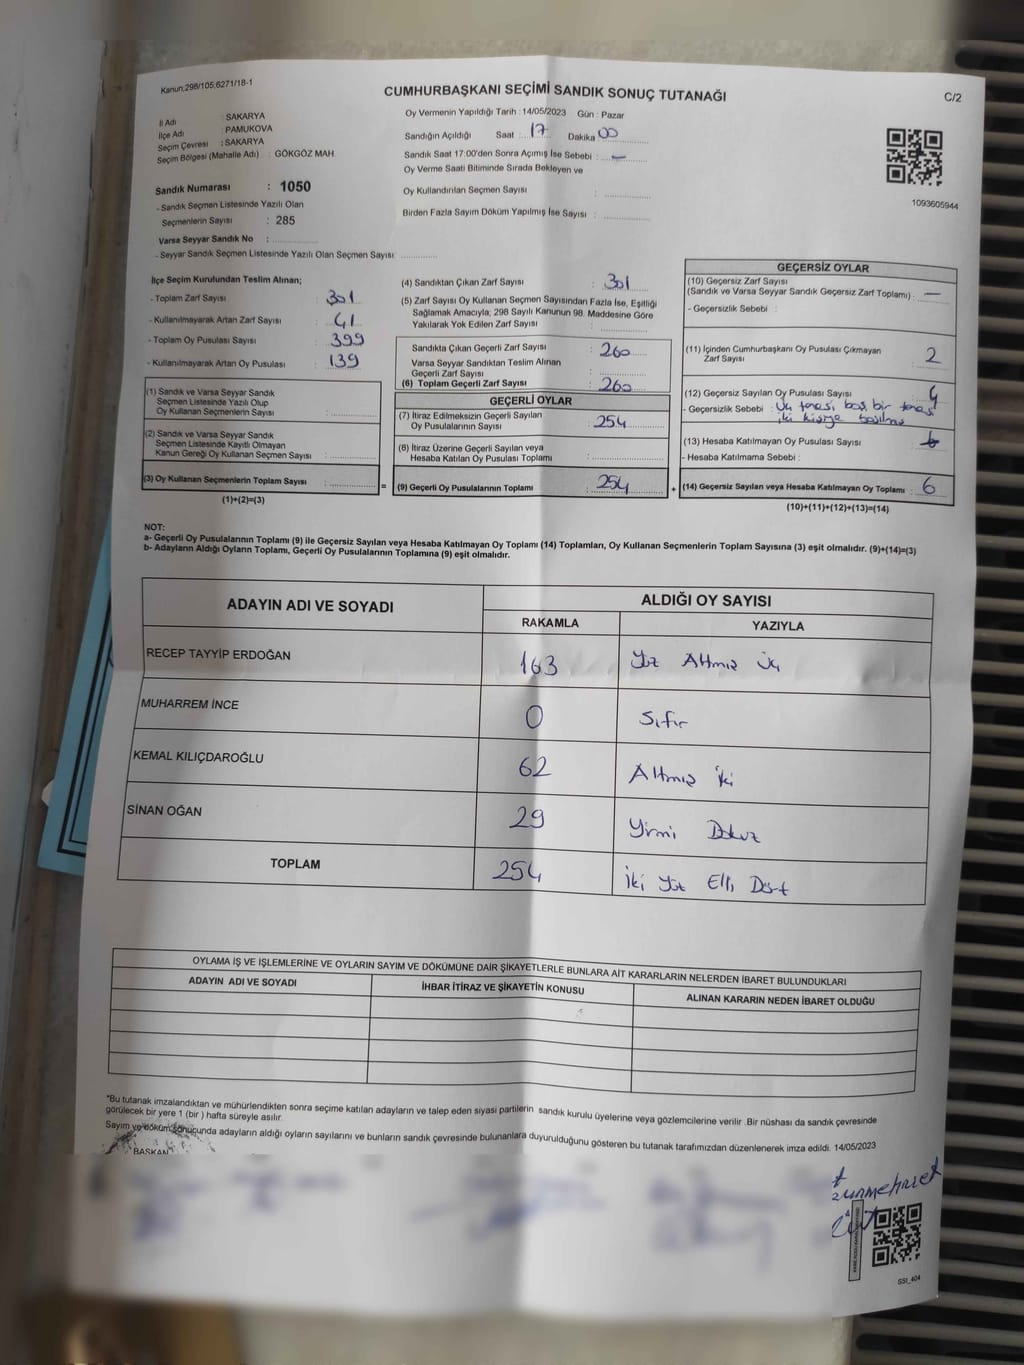 Kanun;298/105,6271/18-1
CUMHURBAŞKANI SEÇİMİ SANDIK SONUÇ TUTANAĞI
C/2
İl Adı : SAKARYA
İlçe Adı : PAMUKOVA
Seçim Çevresi : SAKARYA
Seçim Bölgesi (Mahalle Adı) : GÖKGÖZ MAH.
Sandık Numarası : 1050
- Sandık Seçmen Listesinde Yazılı Olan
Seçmenlerin Sayısı : 285
Varsa Seyyar Sandık No :
- Seyyar Sandık Seçmen Listesinde Yazılı Olan Seçmen Sayısı :
Oy Vermenin Yapıldığı Tarih : 14/05/2023 Gün : Pazar
Sandığın Açıldığı Saat : 17 Dakika 00
Sandık Saat 17:00'den Sonra Açımış İse Sebebi : —
Oy Verme Saati Bitiminde Sırada Bekleyen ve
Oy Kullandırılan Seçmen Sayısı :
Birden Fazla Sayım Döküm Yapılmış İse Sayısı :
1093605944
İlçe Seçim Kurulundan Teslim Alınan;
- Toplam Zarf Sayısı : 301
- Kullanılmayarak Artan Zarf Sayısı : 41
- Toplam Oy Pusulası Sayısı : 399
- Kullanılmayarak Artan Oy Pusulası : 139
(1) Sandık ve Varsa Seyyar Sandık
Seçmen Listesinde Yazılı Olup
Oy Kullanan Seçmenlerin Sayısı :
(2) Sandık ve Varsa Seyyar Sandık
Seçmen Listesinde Kayıtlı Olmayan
Kanun Gereği Oy Kullanan Seçmen Sayısı :
(3) Oy Kullanan Seçmenlerin Toplam Sayısı :
(1)+(2)=(3)
=
(4) Sandıktan Çıkan Zarf Sayısı : 301
(5) Zarf Sayısı Oy Kullanan Seçmen Sayısından Fazla İse, Eşitliği
Sağlamak Amacıyla, 298 Sayılı Kanunun 98. Maddesine Göre
Yakılarak Yok Edilen Zarf Sayısı :
Sandıkta Çıkan Geçerli Zarf Sayısı : 260
Varsa Seyyar Sandıktan Teslim Alınan
Geçerli Zarf Sayısı :
(6) Toplam Geçerli Zarf Sayısı : 260
GEÇERLİ OYLAR
(7) İtiraz Edilmeksizin Geçerli Sayılan
Oy Pusulalarının Sayısı : 254
(8) İtiraz Üzerine Geçerli Sayılan veya
Hesaba Katılan Oy Pusulası Toplamı :
(9) Geçerli Oy Pusulalarının Toplamı : 254
+
GEÇERSİZ OYLAR
(10) Geçersiz Zarf Sayısı
(Sandık ve Varsa Seyyar Sandık Geçersiz Zarf Toplamı) : —
- Geçersizlik Sebebi :
(11) İçinden Cumhurbaşkanı Oy Pusulası Çıkmayan
Zarf Sayısı : 2
(12) Geçersiz Sayılan Oy Pusulası Sayısı : 4
- Geçersizlik Sebebi : Üç tanesi boş bir tanesi
iki kişiye basılmış
(13) Hesaba Katılmayan Oy Pusulası Sayısı :
- Hesaba Katılmama Sebebi :
(14) Geçersiz Sayılan veya Hesaba Katılmayan Oy Toplamı : 6
(10)+(11)+(12)+(13)=(14)
NOT:
a- Geçerli Oy Pusulalarının Toplamı (9) ile Geçersiz Sayılan veya Hesaba Katılmayan Oy Toplamı (14) Toplamları, Oy Kullanan Seçmenlerin Toplam Sayısına (3) eşit olmalıdır. (9)+(14)=(3)
b- Adayların Aldığı Oyların Toplamı, Geçerli Oy Pusulalarının Toplamına (9) eşit olmalıdır.
ADAYIN ADI VE SOYADI
ALDIĞI OY SAYISI
RAKAMLA YAZIYLA
RECEP TAYYİP ERDOĞAN 163 Yüz Altmış Üç
MUHARREM İNCE 0 Sıfır
KEMAL KILIÇDAROĞLU 62 Altmış iki
SİNAN OĞAN 29 Yirmi Dokuz
TOPLAM 254 İki Yüz Elli Dört
OYLAMA İŞ VE İŞLEMLERİNE VE OYLARIN SAYIM VE DÖKÜMÜNE DAİR ŞİKAYETLERLE BUNLARA AİT KARARLARIN NELERDEN İBARET BULUNDUKLARI
ADAYIN ADI VE SOYADI İHBAR İTİRAZ VE ŞİKAYETİN KONUSU ALINAN KARARIN NEDEN İBARET OLDUĞU
*Bu tutanak imzalandıktan ve mühürlendikten sonra seçime katılan adayların ve talep eden siyasi partilerin sandık kurulu üyelerine veya gözlemcilerine verilir .Bir nüshası da sandık çevresinde
görülecek bir yere 1 (bir ) hafta süreyle asılır.
Sayım ve döküm sonucunda adayların aldığı oyların sayılarını ve bunların sandık çevresinde bulunanlara duyurulduğunu gösteren bu tutanak tarafımızdan düzenlenerek imza edildi. 14/05/2023
BAŞKAN
SSI_404